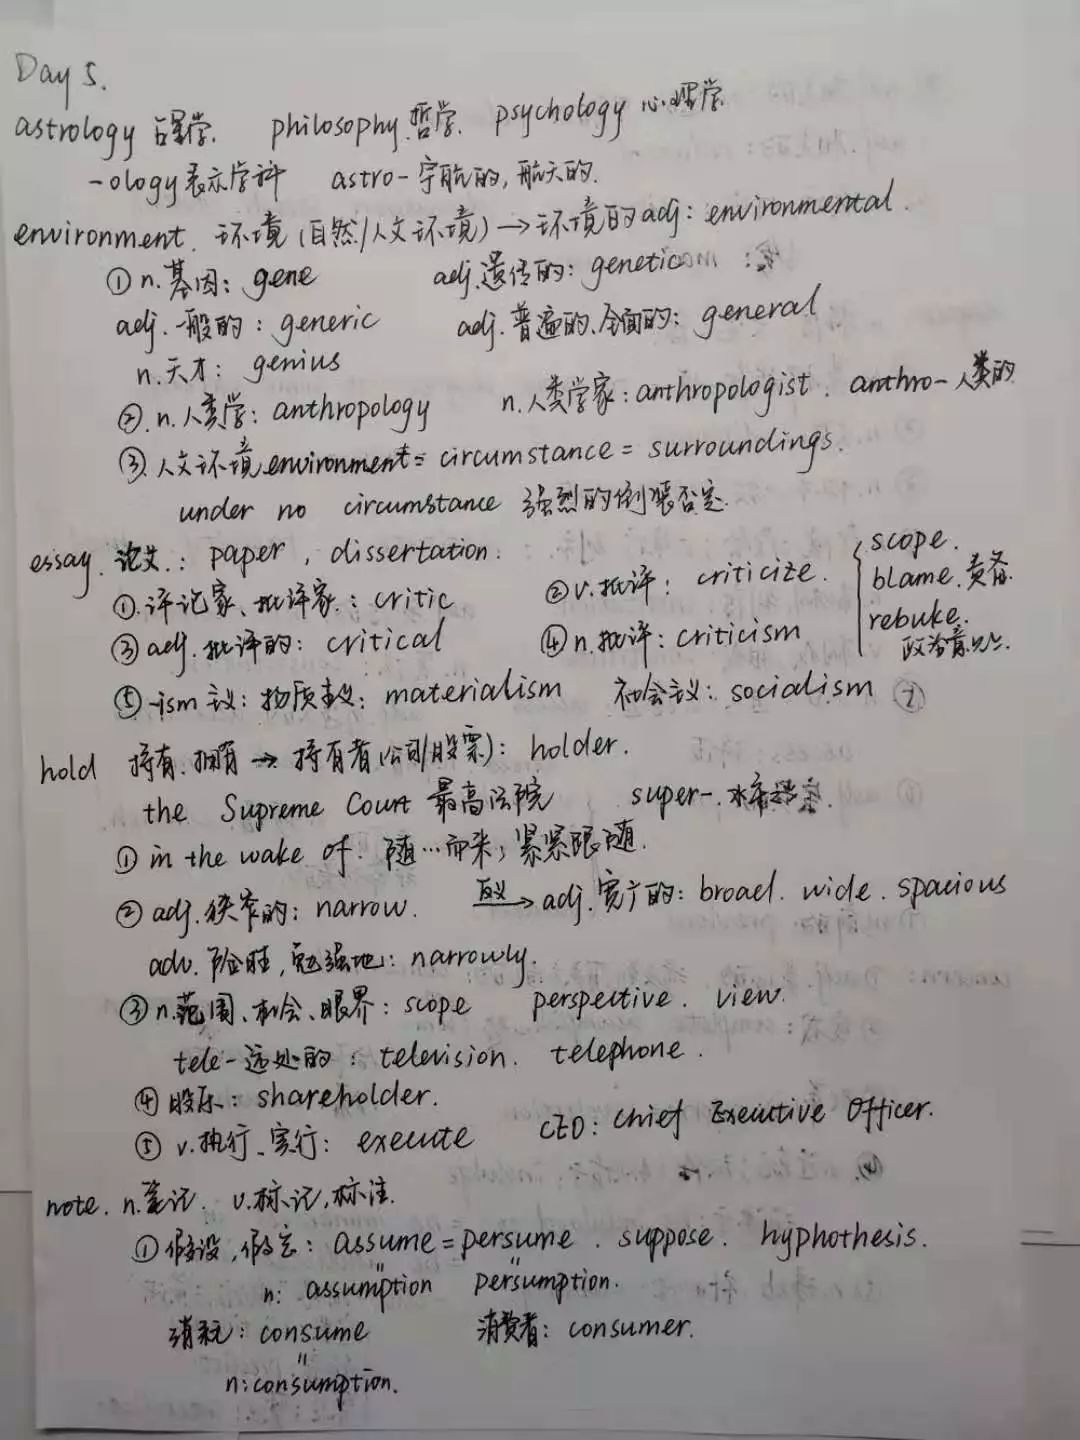 Day 5.
astrology 占星学. philosophy.哲学. psychology 心理学
-ology表示学科 astro-宇航的,航天的.
environment. 环境(自然/人文环境)→环境的adj: environmental.
①n.基因: gene adj.遗传的: genetic
adj.一般的: generic adj.普遍的、全面的: general
n.天才: genius
②.n.人类学: anthropology n.人类学家: anthropologist. anthro-人类的
③.人文环境environment=circumstance=surroundings.
under no circumstance 强烈的倒装否定.
essay. 论文.: paper, dissertation.
①.评论家、批评家.: critic ②v.批评: criticize. scope.
blame.责备.
③adj.批评的: critical ④n.批评: criticism rebuke.
⑤-ism主义: 物质主义: materialism 社会主义: socialism
hold 持有.拥有→持有者(公司/股票): holder.
the Supreme Court 最高法院 super-.
①in the wake of. 随…而来; 紧紧跟随.
②adj.狭窄的: narrow. 反义→adj.宽广的: broad. wide. spacious
adv.险胜,勉强地: narrowly.
③n.范围、机会、眼界: scope perspective. view.
tele-远处的: television. telephone.
④股东: shareholder.
⑤v.执行、实行: execute CEO: Chief Executive Officer.
note. n.笔记. v.标记,标注.
①假设,假定: assume=persume. suppose. hyphothesis.
n: assumption persumption.
消耗: consume 消费者: consumer.
n:consumption.